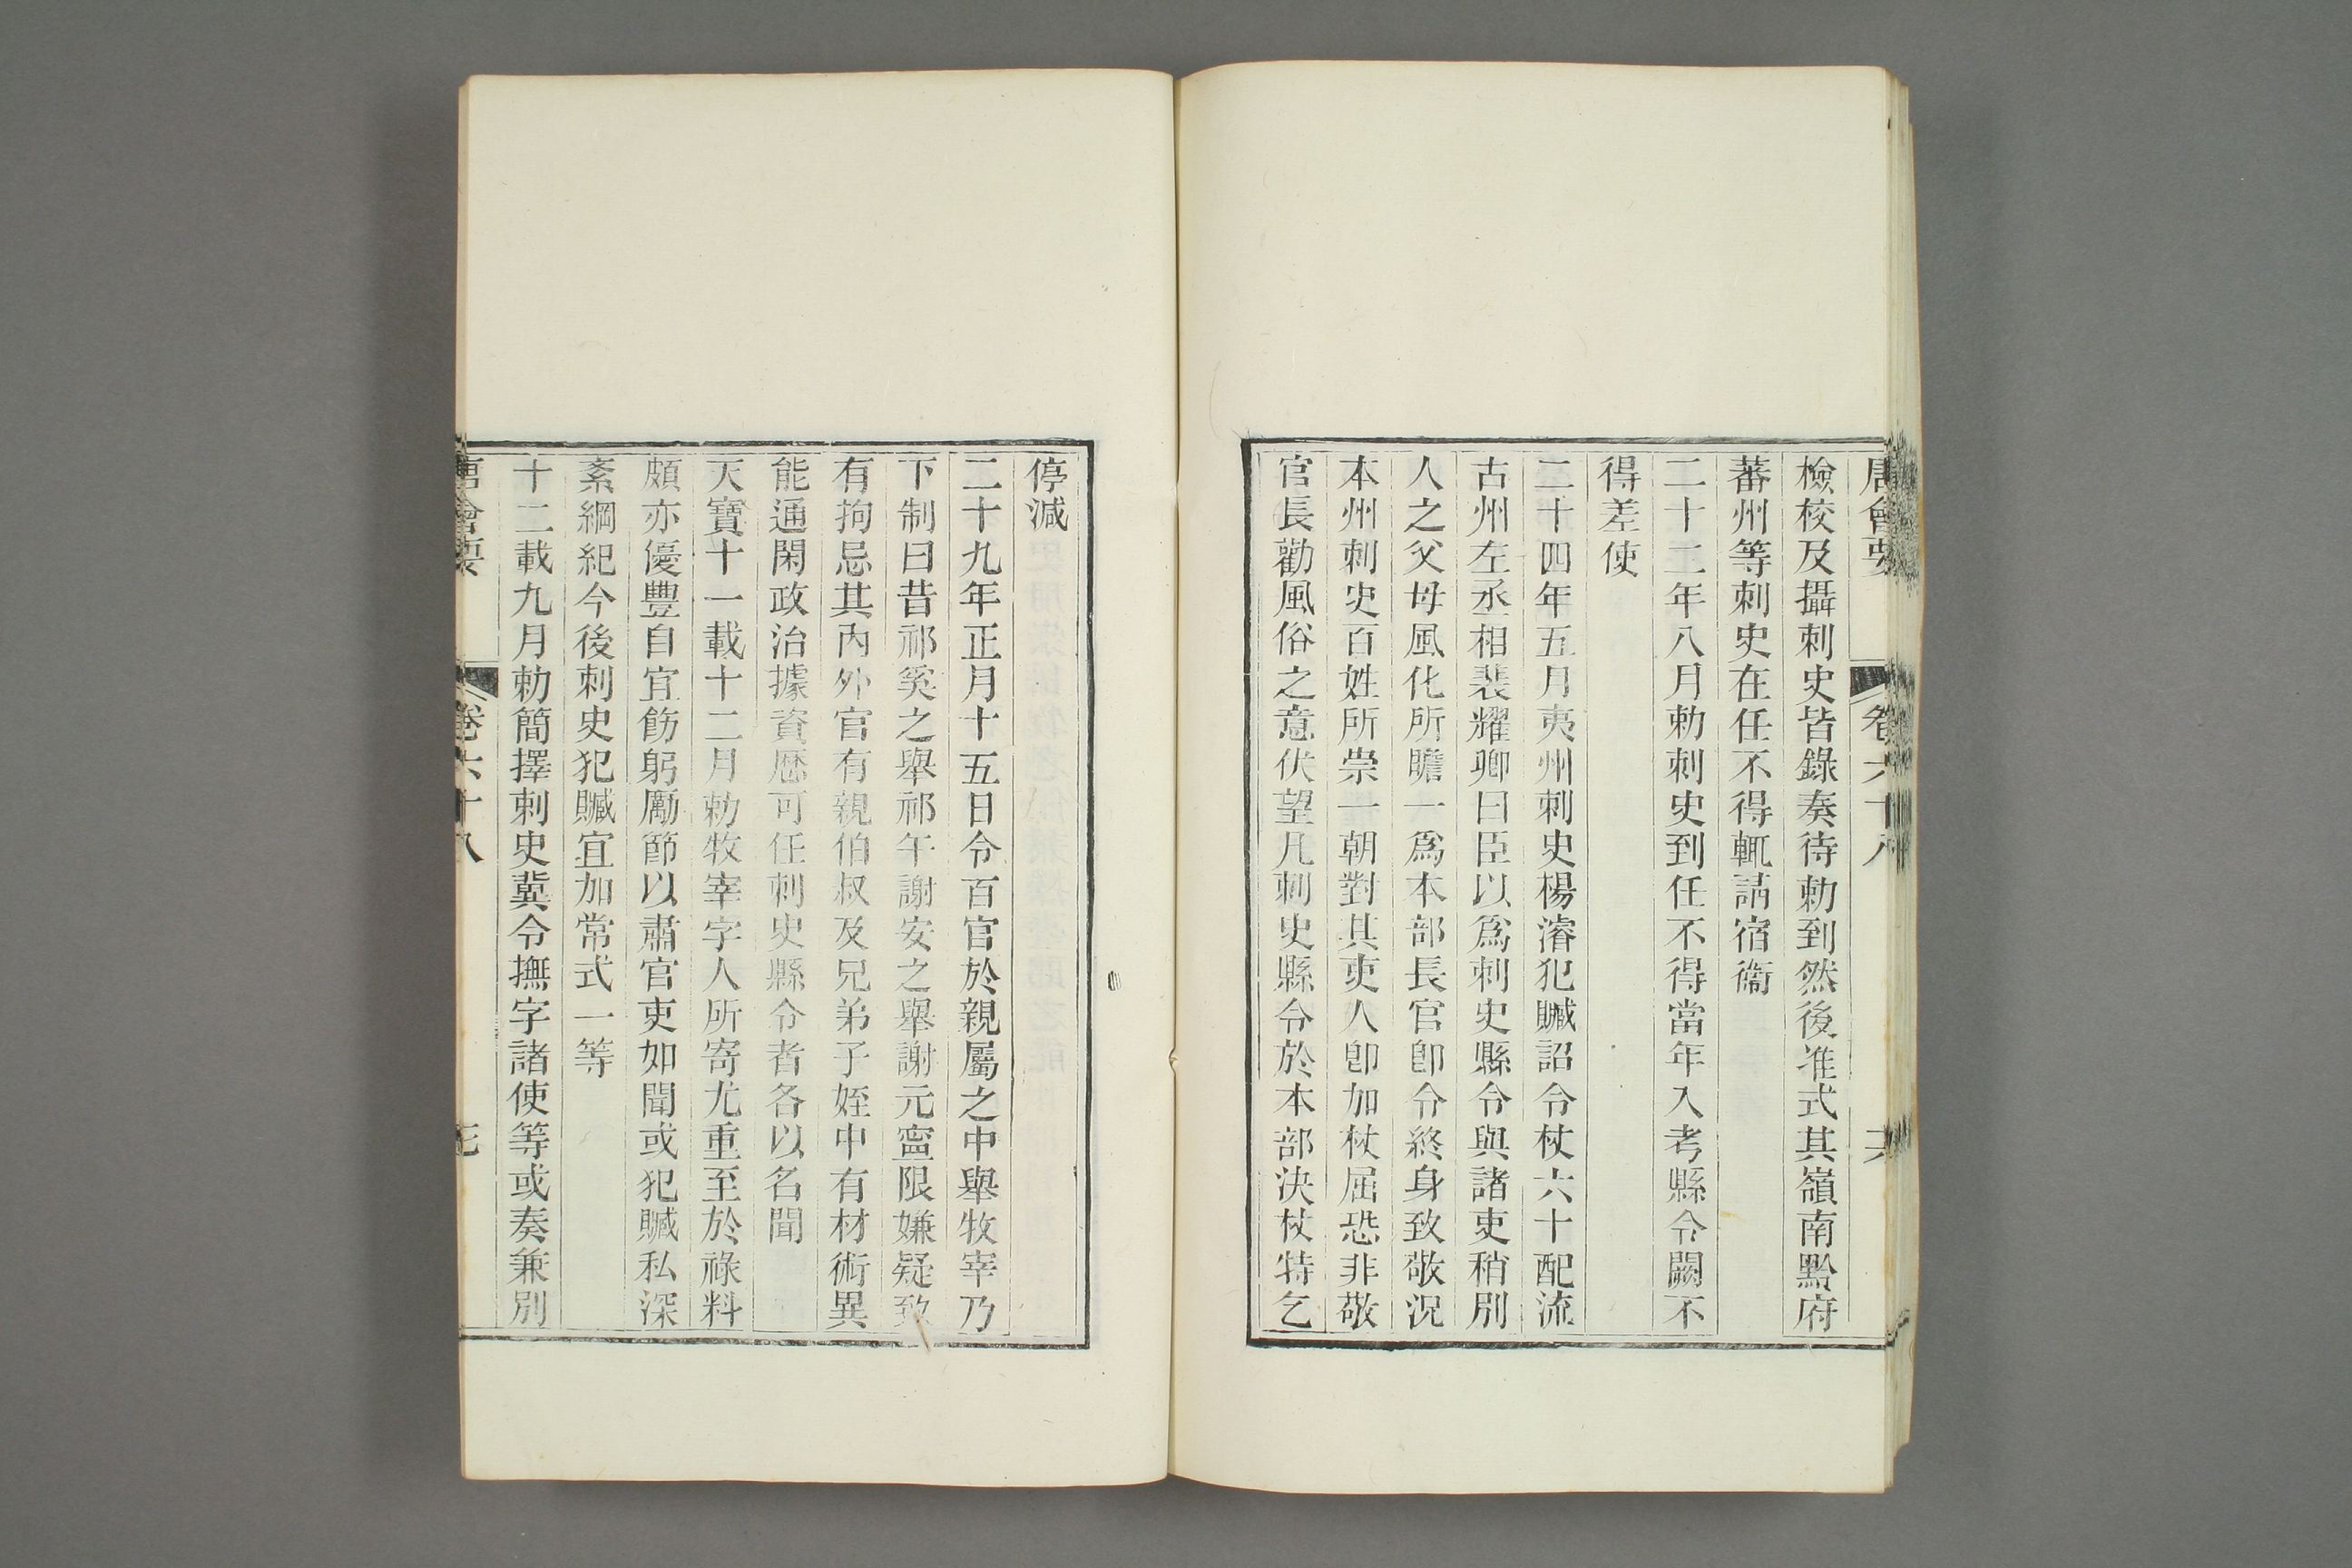 唐會要 卷六十八 六
檢校及攝刺史皆錄奏待勅到然後准式其嶺南黔府
蕃州等刺史在任不得輒請宿衞
二十二年八月勅刺史到任不得當年入考縣令闕不
得差使
二十四年五月夷州刺史楊濬犯贓詔令杖六十配流
古州左丞相裴耀卿曰臣以爲刺史縣令與諸吏稍別
人之父母風化所瞻一爲本部長官卽令終身致敬況
本州刺史百姓所崇一朝對其吏人卽加杖屈恐非敬
官長勸風俗之意伏望凡刺史縣令於本部決杖特乞
停減
二十九年正月十五日令百官於親屬之中舉牧宰乃
下制曰昔祁奚之舉祁午謝安之舉謝元寍限嫌疑致
有拘忌其內外官有親伯叔及兄弟子姪中有材術異
能通閑政治據資歷可任刺史縣令者各以名聞
天寶十一載十二月勅牧宰字人所寄尤重至於祿料
頗亦優豐自宜飭躬厲節以肅官吏如聞或犯贓私深
紊綱紀今後刺史犯贓宜加常式一等
十二載九月勅簡擇刺史冀令撫字諸使等或奏兼別
唐會要 卷六十八